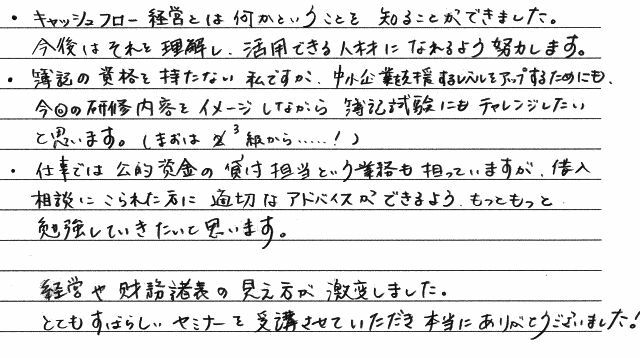 ・キャッシュフロー経営とは何かということを知ることができました。
今後はそれを理解し、活用できる人材になれるよう努力します。
・簿記の資格を持たない私ですが、中小企業を支援するレベルをアップするためにも、
今回の研修内容をイメージしながら簿記試験にもチャレンジしたい
と思います。(まずは3級から.....!)
・仕事では公的資金の貸付担当という業務も担っていますが、借入
相談にこられた方に適切なアドバイスができるよう、もっともっと
勉強していきたいと思います。
経営や財務諸表の見え方が激変しました。
とてもすばらしいセミナーを受講させていただき本当にありがとうございました!